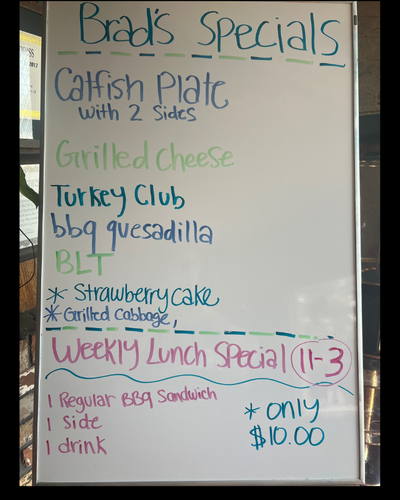 Brad's Specials
Catfish Plate
with 2 Sides
Grilled Cheese
Turkey Club
bbq quesadilla
BLT
* Strawberry cake
* Grilled Cabbage,
Weekly Lunch Special 11-3
1 Regular BBQ Sandwich
1 Side
1 drink
* only
$10.00